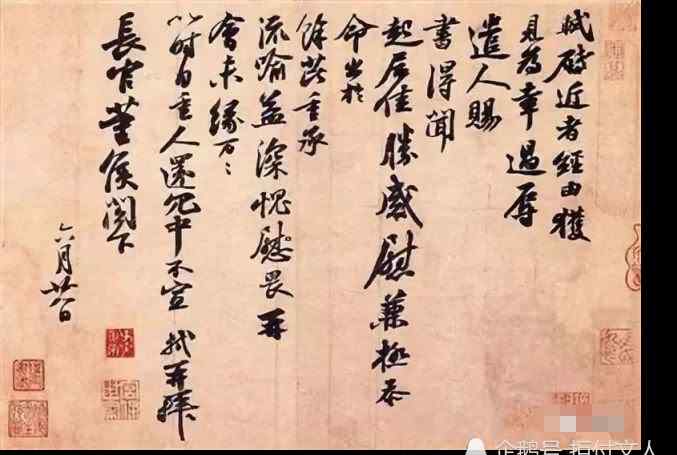 軾啓近者經由獲
見為幸過辱
遣人賜
書得聞
起居佳勝感慰兼極忝
命出於
餘芘重承
流喻益深愧慰畏再
會未緣万〻
以時自重人還冗中不宣 軾再拜
長官董侯閤下
六月廿八日
企鹅号